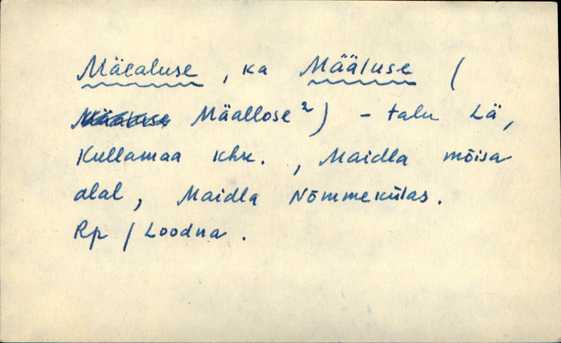 Mäealuse, ka Määluse (
Määluse Mäallose²) - talu Lä,
Kullamaa khk., Maidla mõisa
alal, Maidla Nõmmekülas.
Rp / Loodna.